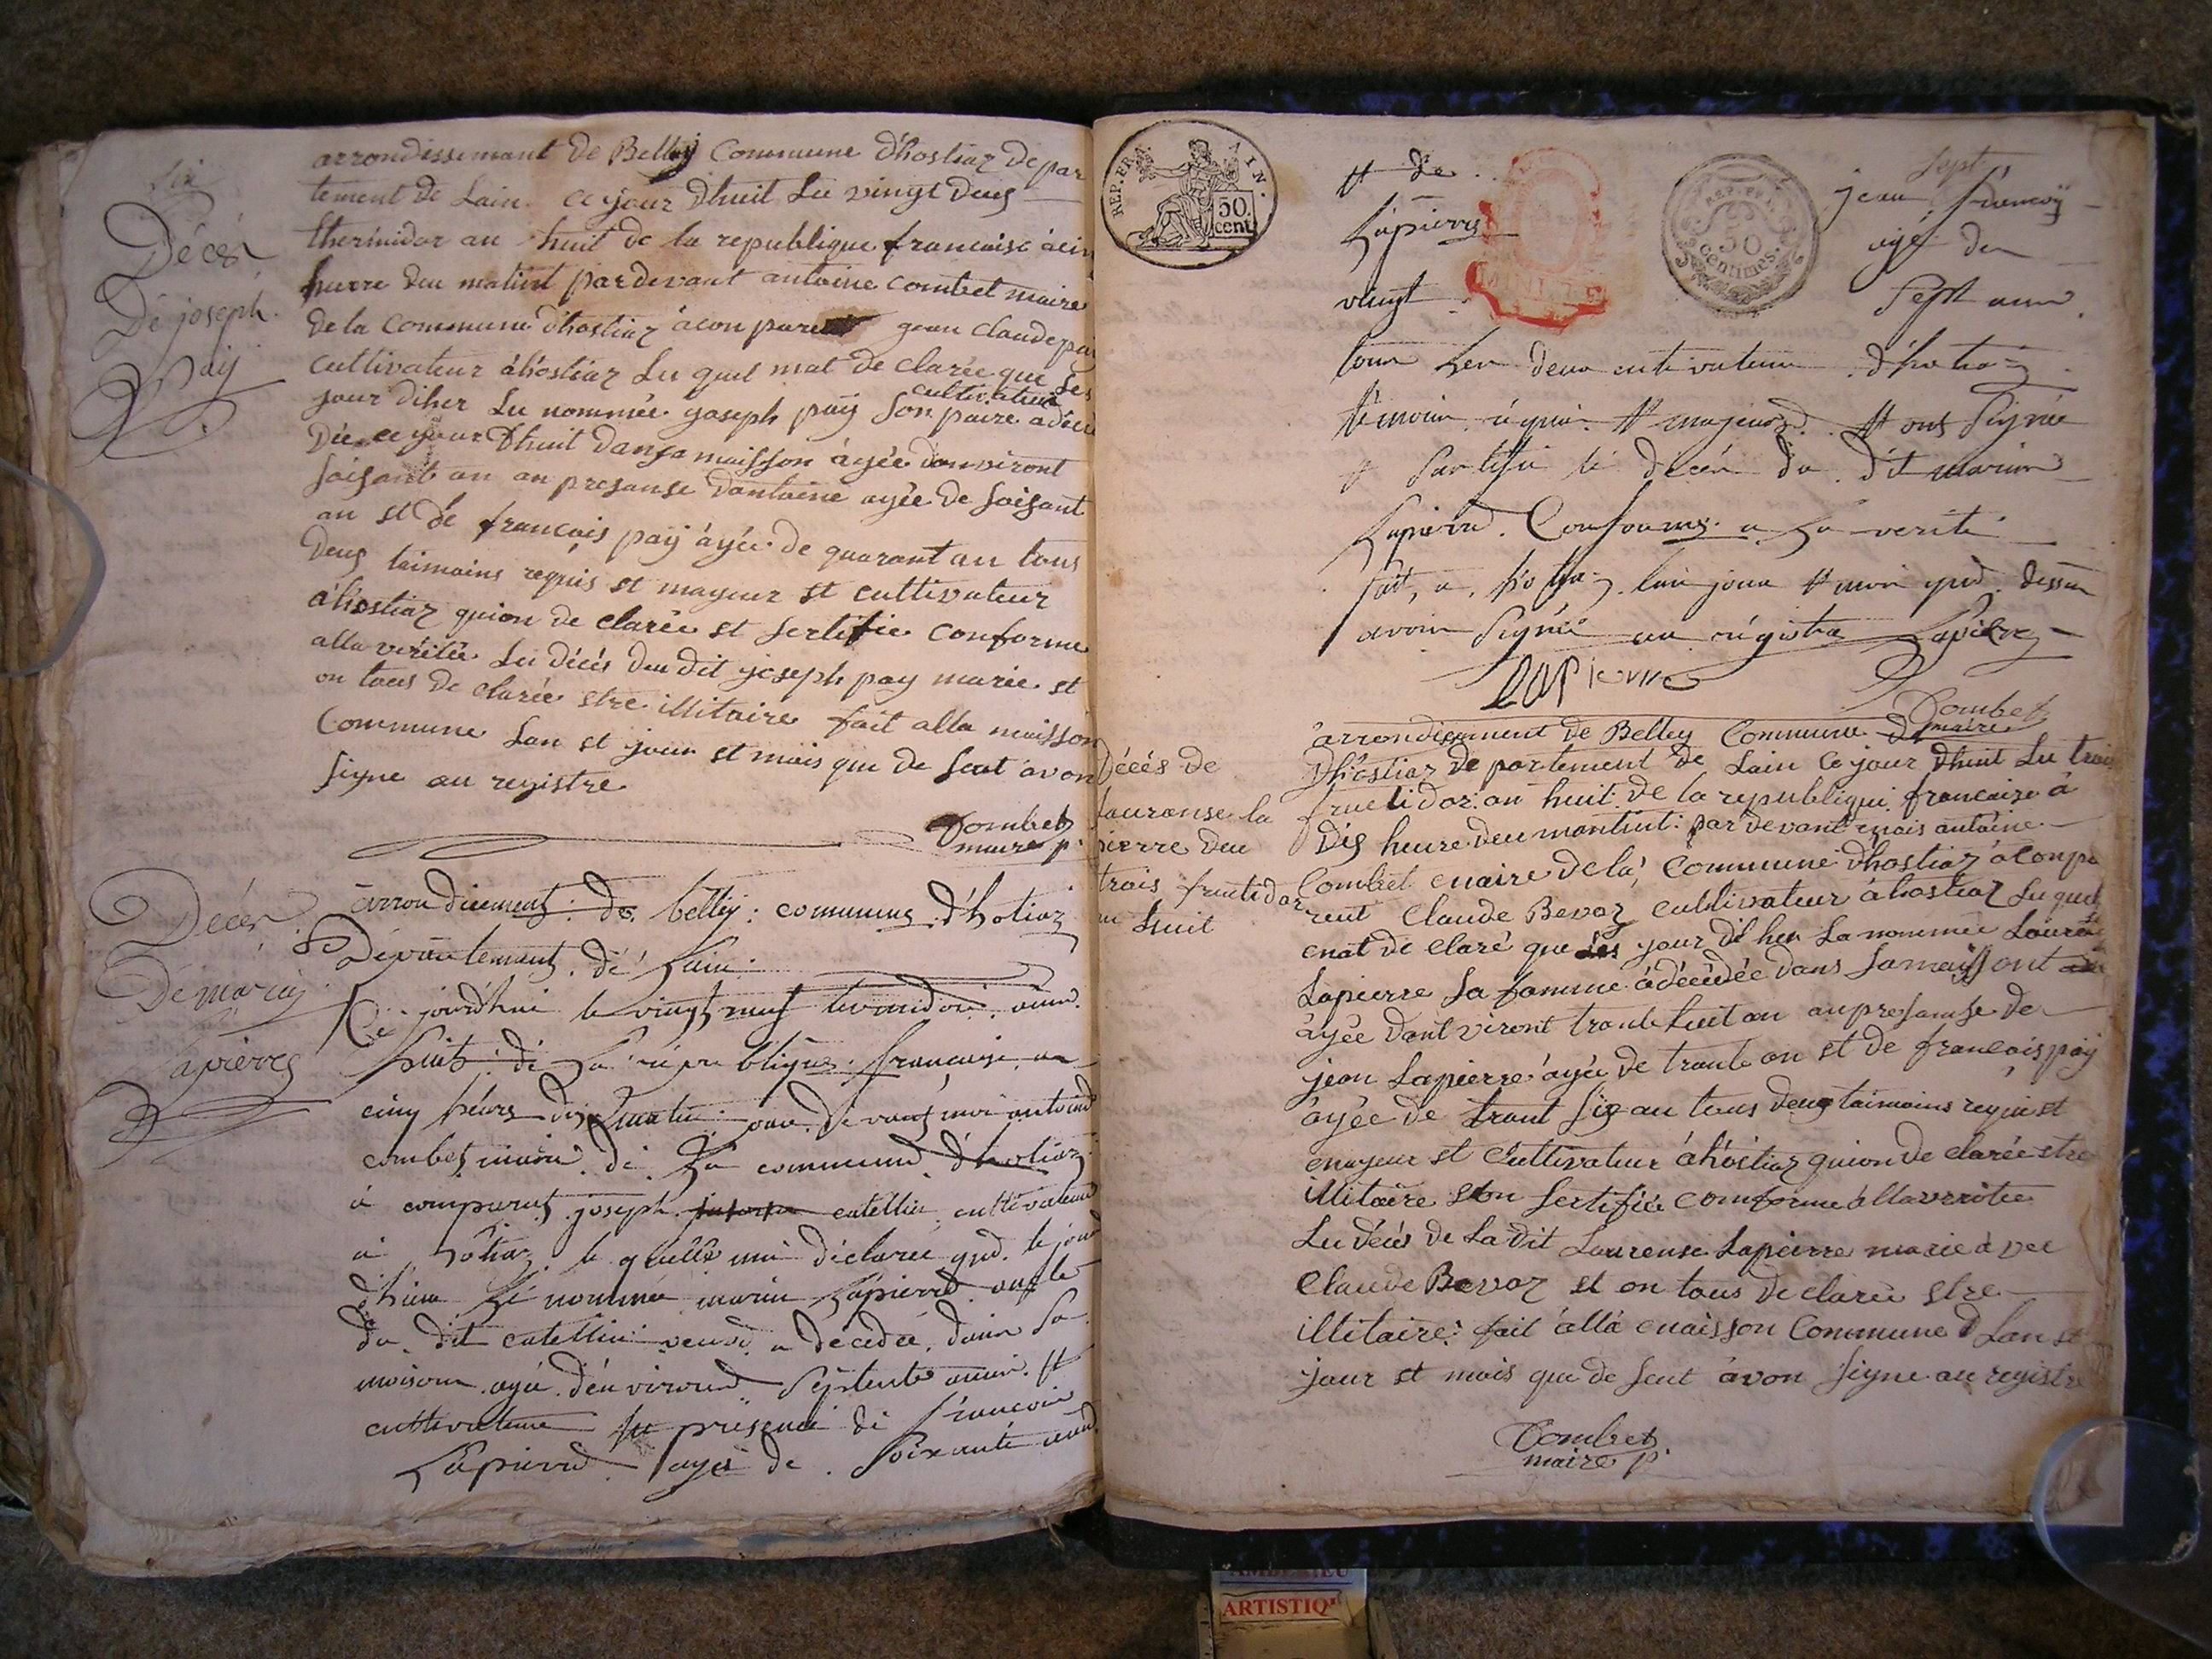 six
Décés
De joseph
Paij
arrondissemant de Belley Commune d'hostiaz depar
tement de Lain ce jour dhuit Lu vingt deus
thermidor an huit de la republique francaise à cin
hurre deu matint pardevant antoine combet maire
de la Commune d'hostiaz àconparent jean Claude pai
Cultivateur àhostiaz Lu quel mat de clarée que Les
cultivateur
jour diher Lu nommée joseph paij Son paire adécé
Dée ce jour Dhuit dansa maisson âgée danviront
soisant an an presanse dantoine agée de soisant
an st de francois paij âgée de quarant an tous
Deus taimoins requis st mayeur st cultivateur
àhostiaz quion de clarée st sertifie conforme
alla veritée Lu décés deu dit joseph pay marie st
on tous de clarée stre illitaire fait alla maisson
Commune Lan st jour st mois que de sent avon
signe au registre
Combet
maire p.
Décés
De marin
Lapierre
arrondicement de belleij communue d'hotiaz
Dépaûtement dé Lain
Ce jourd'hui le vingt neuf termidor anne
huit di La république française a
cinq heures du par de vant moi antoine
combet maire di La commune d'hotiaz
à comparut joseph catellin cultivateur
à hôtiaz le quelle ma déclaree que le jour
d'hiere Le nommée marin Lapierre
du dit catellin a décedée dans sa
maison agée d'environd Septente anné st
cultivateur su présence di François
Lapierre agé de Soixante
REP. FRA. AIN.
50 cent
REP. FRA.
50 centimes
sept
st de jean François
Lapierre agé de
vingt sept anné
tous Les deux cutivateur d'hotiaz
témoin réquis st majeurs st ont Signée
st Sertifie le decés du dit marin
Lapierre Conforme a La verité
fait a hotiaz lan jour st moi que dessu
avon Signée au régistre Lapierre
LaPierre
Combet
maire
Décés de
Lauranse la
pierre deu
trois fructidor
an huit
àrrondissement de Belley Commune
D'hostiaz departement de Lain ce jour dhuit Lu trois
fructidor an huit de la republique francaise à
Dis heure deu montint par devant mais antoine
Combet maire de la Commune d'hostiaz àconpa
rent Claude Bevoz cultivateur àhostiaz Lu quel
mat de claré que Les jour diher La nommée Lauren
Lapierre sa famme àdécédée dans samaissont
àgée dant viront trante huit an anpresanse de
jean Lapierre àgée de trante an st de francois paij
âgée de trant sis an tous deus taimoins requis st
mayeur st Cultivateur àhôstiaz quion de clarée stre
illitaire ston sertifiée comforme àllaverrotee
Lu décés de La dit Laurense Lapierre marie à vec
Claude Bevoz st on tous declarée stre
illitaire fait àlla maisson Commune Lan st
jour st mois que de sent àvon signe au registre
Combet
maire p.
ARTISTIQ